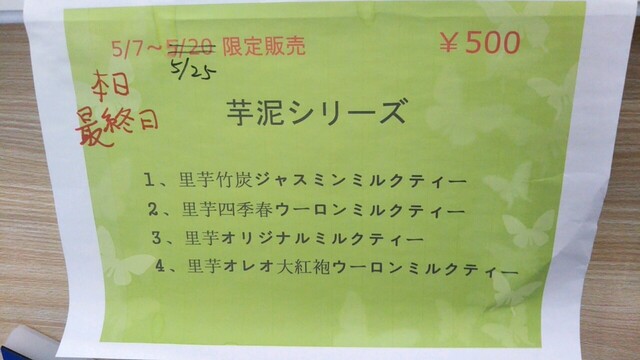 5/7～5/20 限定販売
5/25
￥500
本日
最終日
芋泥シリーズ
1、里芋竹炭ジャスミンミルクティー
2、里芋四季春ウーロンミルクティー
3、里芋オリジナルミルクティー
4、里芋オレオ大紅袍ウーロンミルクティー